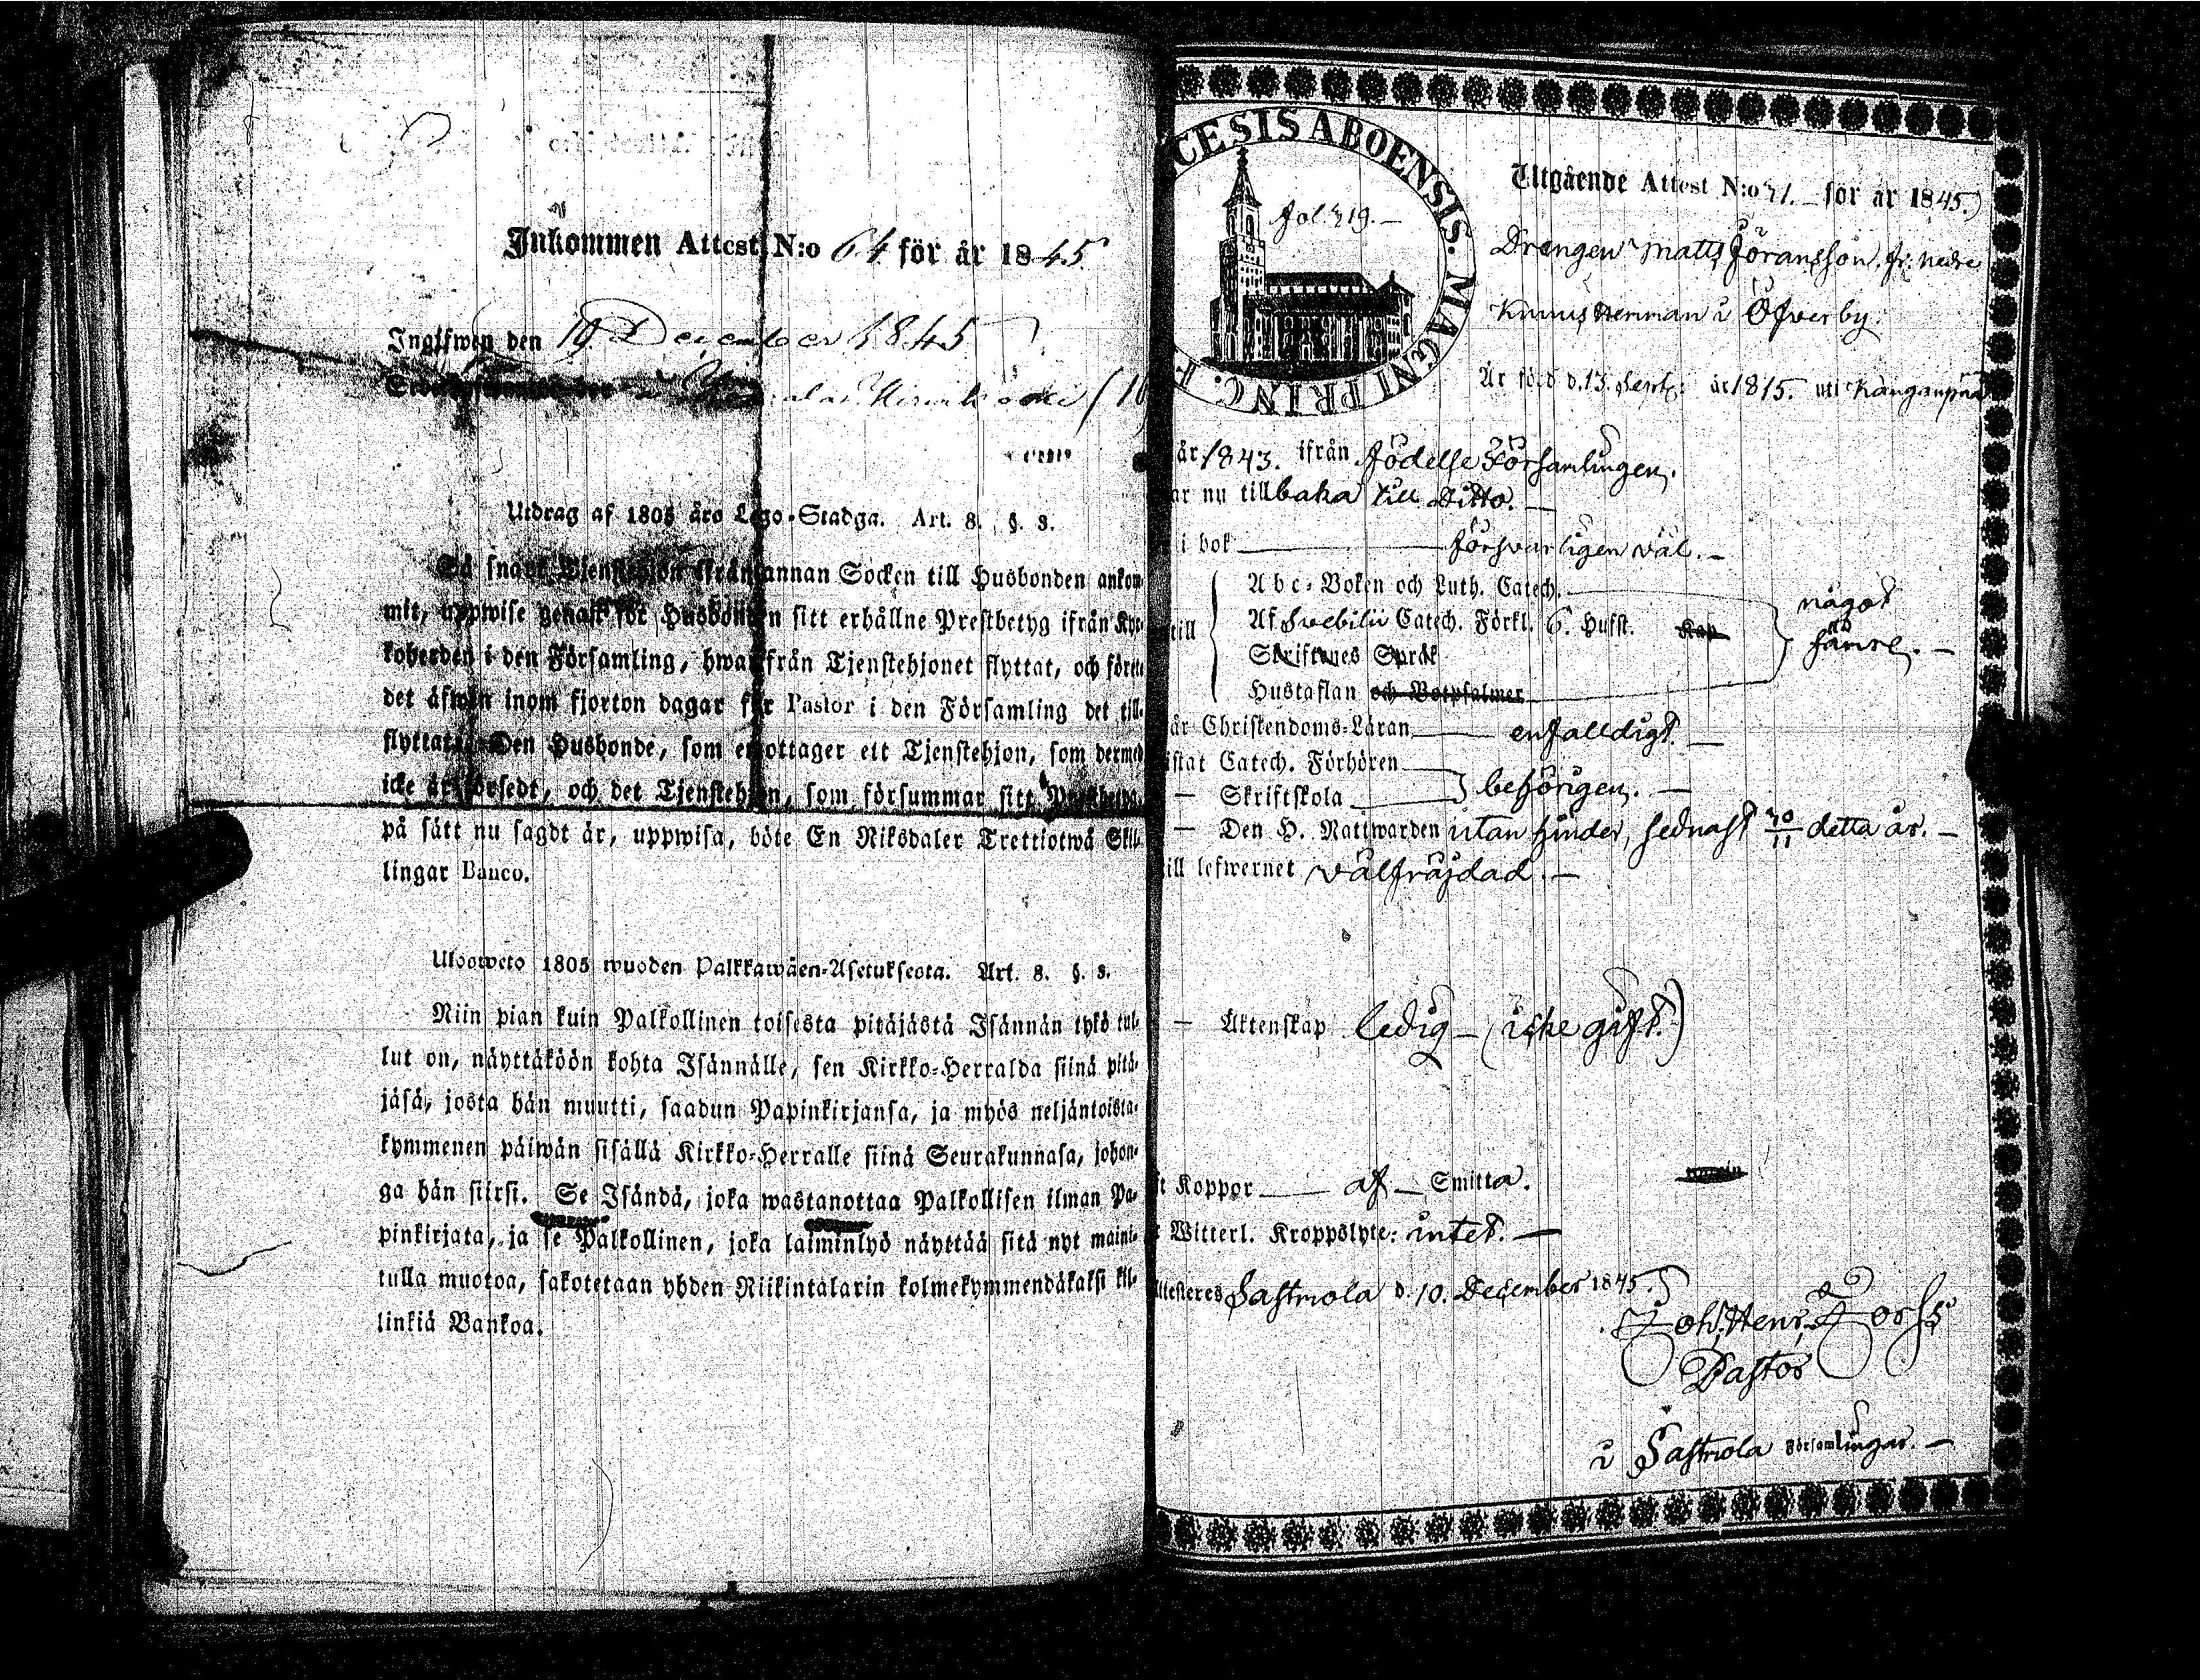 Inkommen Attest N:o 64 för år 1845
Ingifwen den 19 December 1845
Utdrag af 1805 års Lego-Stadga. Art. 8. §. 3.
Så snart Tjenstehjon ifrån annan Socken till Husbonden ankom-
mit, uppwise genast för Husbonden sitt erhållne Prestbetyg ifrån Kyr-
koherden i den Församling, hwarifrån Tjenstehjonet flyttat, och förete
det äfwen inom fjorton dagar för Pastor i den Församling det till-
flyttat. Den Husbonde, som emottager ett Tjenstehjon, som dermed
icke är försedt, och det Tjenstehjon, som försummar sitt Prestbetyg,
på sätt nu sagdt är, uppwisa, böte En Riksdaler Trettiotwå Skil-
lingar Banco.
Ulosweto 1805 wuoden Palkkawäen-Asetuksesta. Art. 8. §. 3.
Niin pian kuin Palkollinen toisesta pitäjästä Isännän tykö tul-
lut on, näyttäköön kohta Isännälle, sen Kirkko-Herralda siinä pitä-
jäsä, josta hän muutti, saadun Papinkirjansa, ja myös neljäntoista-
kymmenen päiwän sisällä Kirkko-Herralle siinä Seurakunnasa, johon-
ga hän siirsi. Se Isändä, joka wastanottaa Palkollisen ilman Pa-
pinkirjata, ja se Palkollinen, joka laiminlyö näyttää sitä nyt maini-
tulla muotoa, sakotetaan yhden Riikintalarin kolmekymmendäkaksi kil-
linkiä Bankoa.
CESIS ABOENSIS. MAGNI PRINC. F
Fol 219.
Utgående Attest N:o 71. för år 1845.
Drengen Matts Göransson, fr. Nedre
Knuus Herrman i Öfverby.
Är född d. 13. Sept: år 1815. uti
år 1843. ifrån födelse Församlingen.
ar nu tillbaka till Ditto.
i bok försvarligen väl.
Abc-Boken och Luth. Catech.
till Af Svebilii Catech. Förkl. 6. Hufst. Kap
något
Skriftenes Språk
Hustaflan och Botpsalmer
är Christendoms-Läran enfalldigt.
istat Catech. Förhören
Skriftskola behörigen.
Den H. Nattwarden utan hinder, sednast 30/11 detta år.
till lefwernet välfräjdad.
Äktenskap ledig (icke gift.)
t Koppor af Smitta.
Witterl. Kroppslyte: intet.
ttesteres Sastmola d. 10. December 1845.
Joh. Henr. Forss
Pastor
i Sastmola Församlingar.